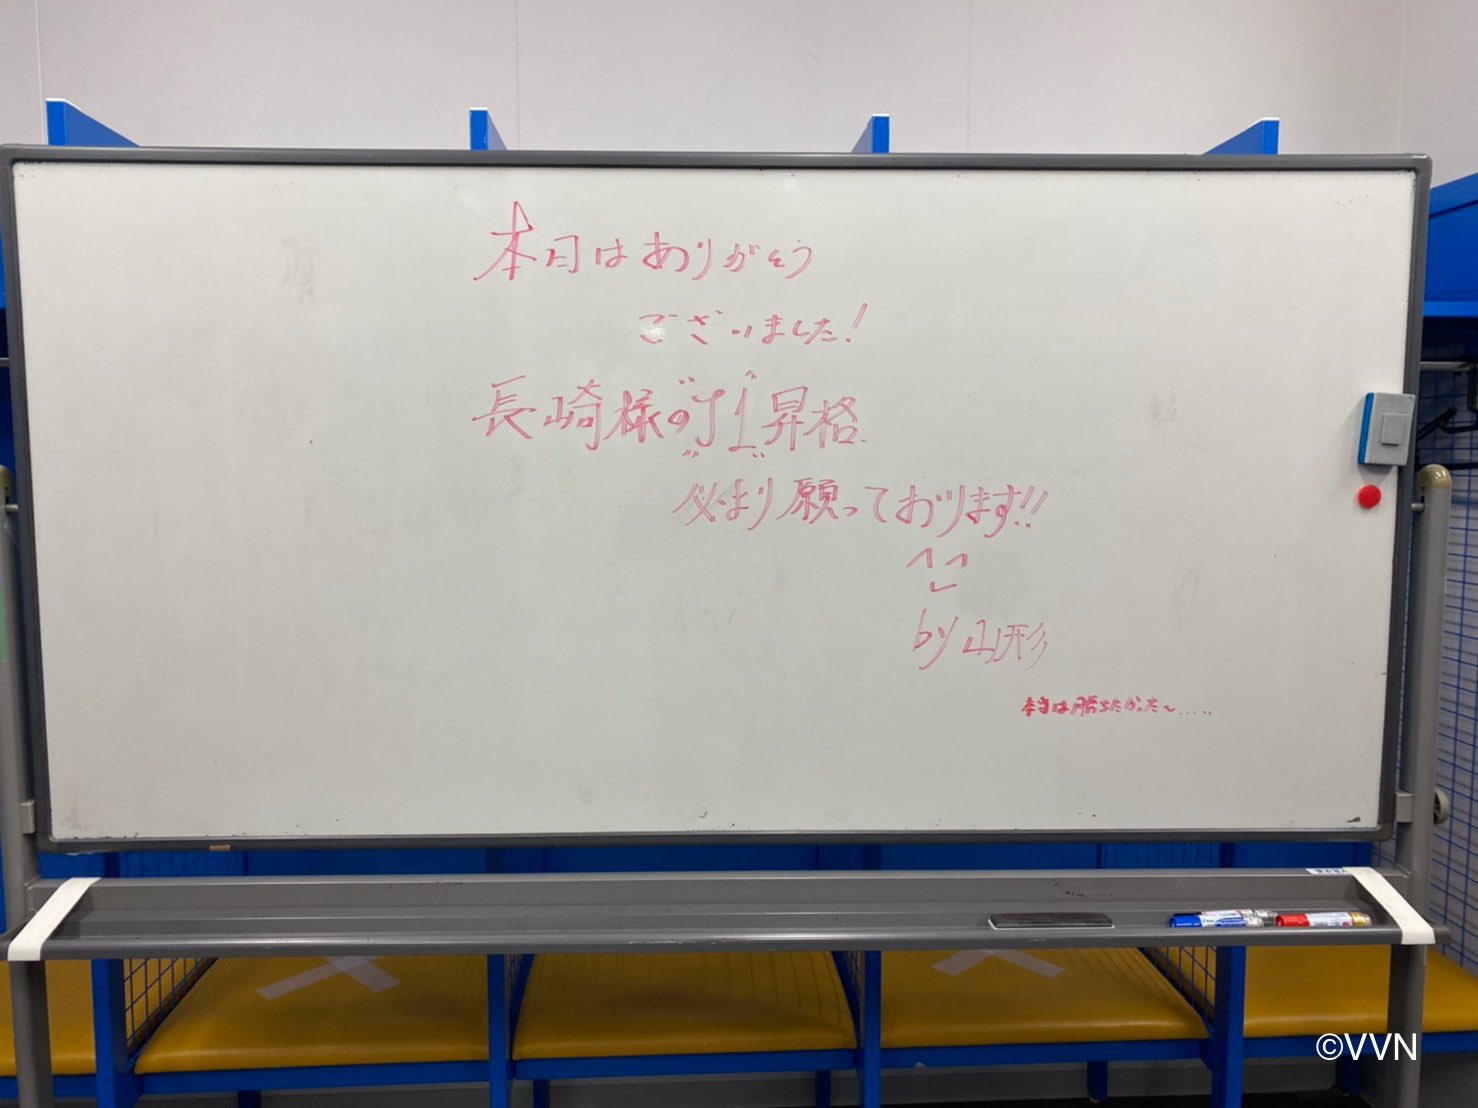 本日はありがとう
ございました!
長崎様の"J1"昇格
心より願っております!!
by 山形
本当は勝ちたかった〜.....
©VVN